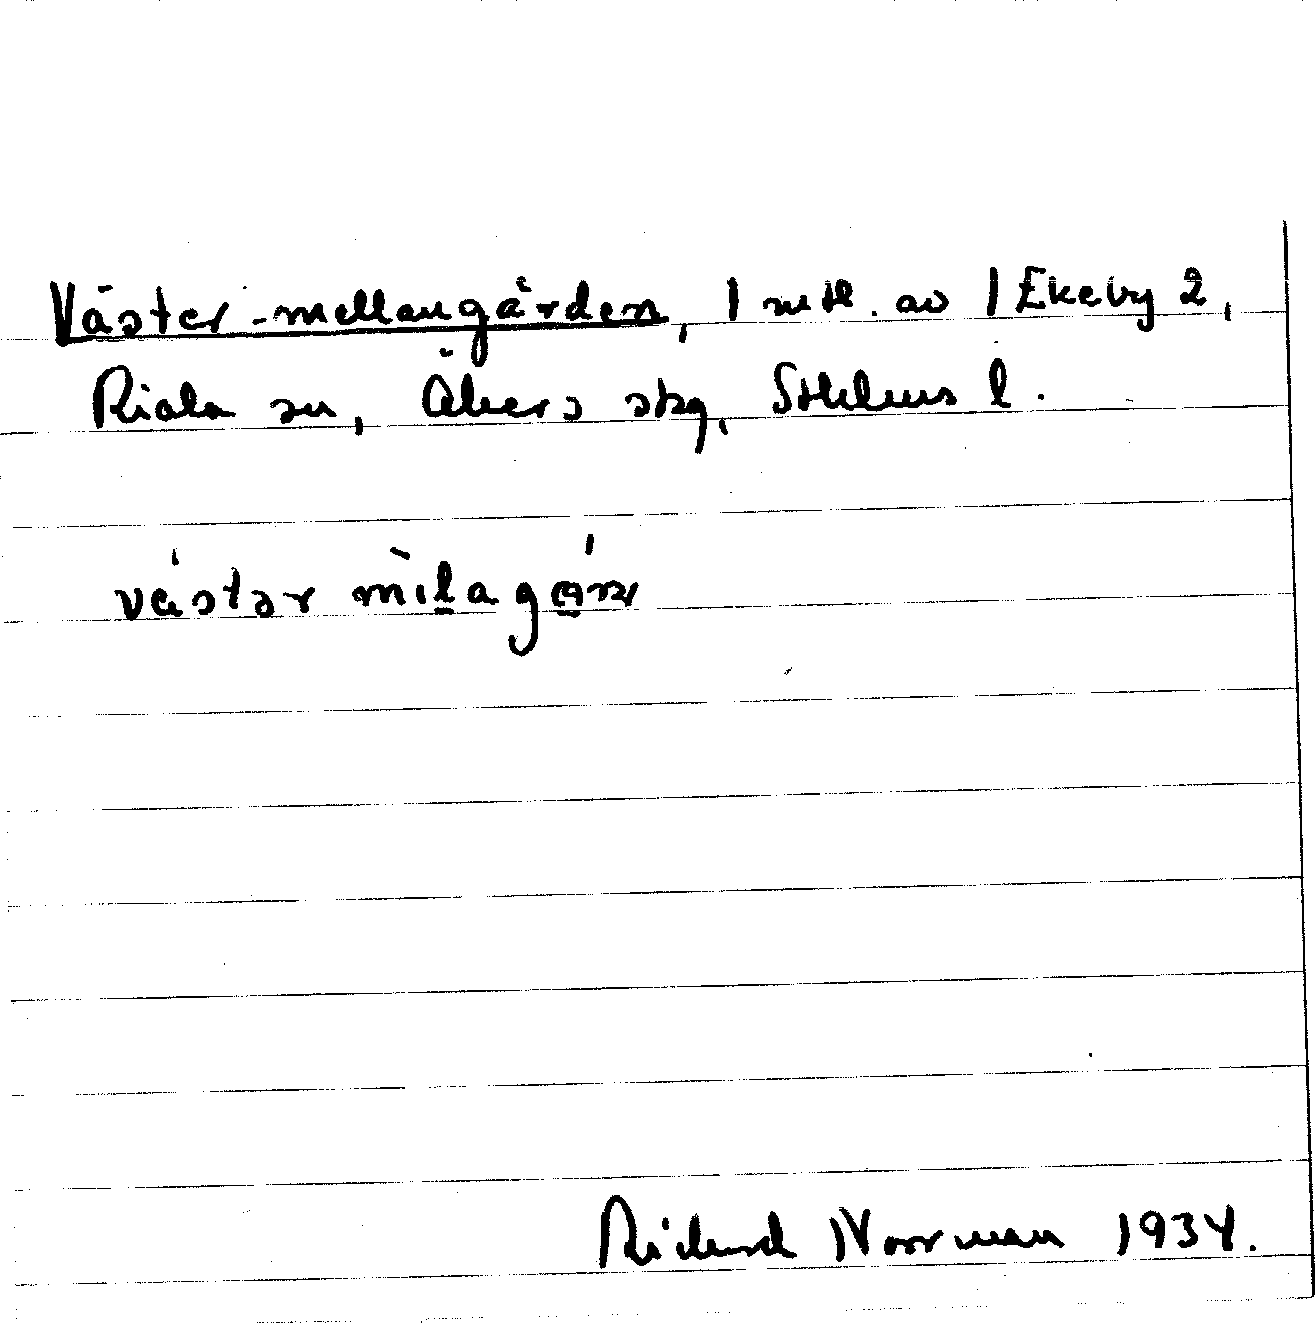 Väster-mellangården, 1 mtl. av 1 Ekeby 2,
Riala sn, Åkers skg, Sthlms l.
västər mìlagån
Richard Norrman 1934.